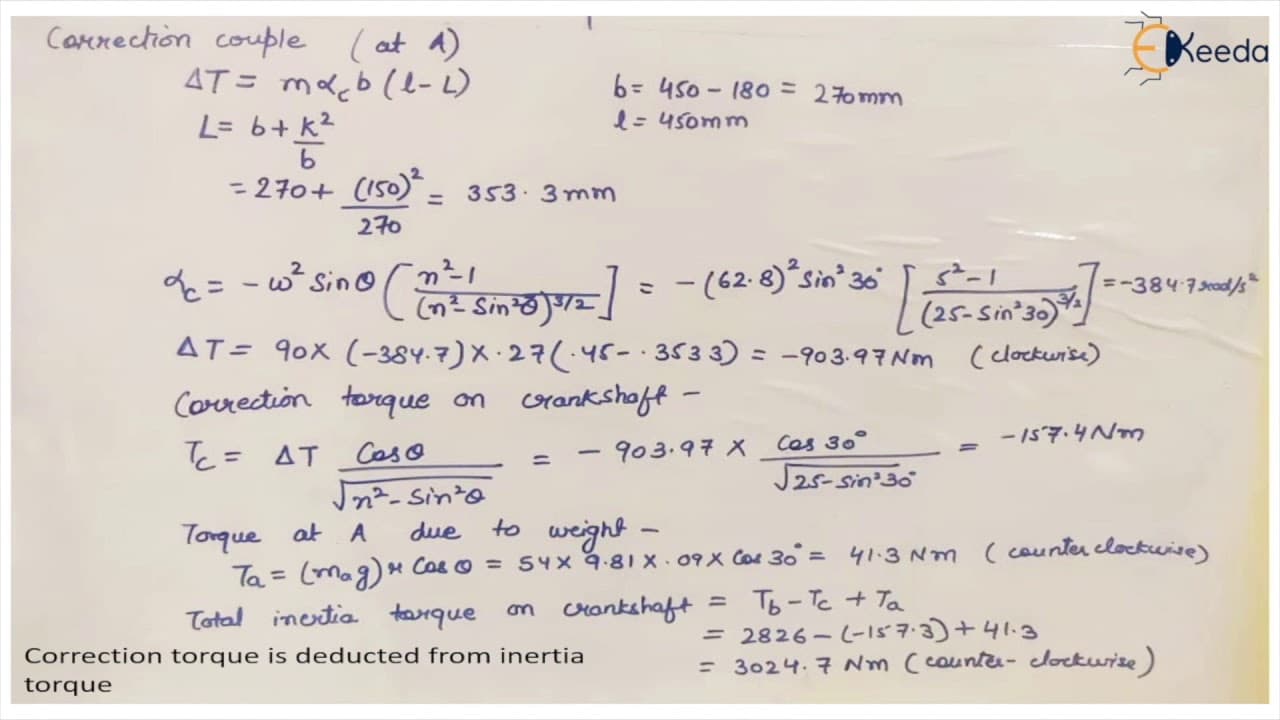 Correction couple (at A)
Keeda
ΔT = mα_c b (l-L)
b = 450 - 180 = 270mm
L = b + k²/b
l = 450mm
= 270 + (150)²/270 = 353.3mm
α_c = -ω² sinθ [n²-1/(n²-sin²θ)^3/2] = -(62.8)² sin² 30° [5²-1/(25-sin²30)^3/2] = -384.7 rad/s²
ΔT = 90 × (-384.7) × .27 (.45 - .3533) = -903.97 Nm (clockwise)
Correction torque on crankshaft -
T_c = ΔT Cosθ/√n²-Sin²θ = -903.97 × Cos 30°/√25-sin²30° = -157.4 Nm
Torque at A due to weight -
Ta = (m_a g) r Cosθ = 54 × 9.81 × .09 × Cos 30° = 41.3 Nm (counter clockwise)
Total inertia torque on crankshaft = T_b - T_c + T_a
= 2826 - (-157.3) + 41.3
= 3024.7 Nm (counter-clockwise)
Correction torque is deducted from inertia
torque